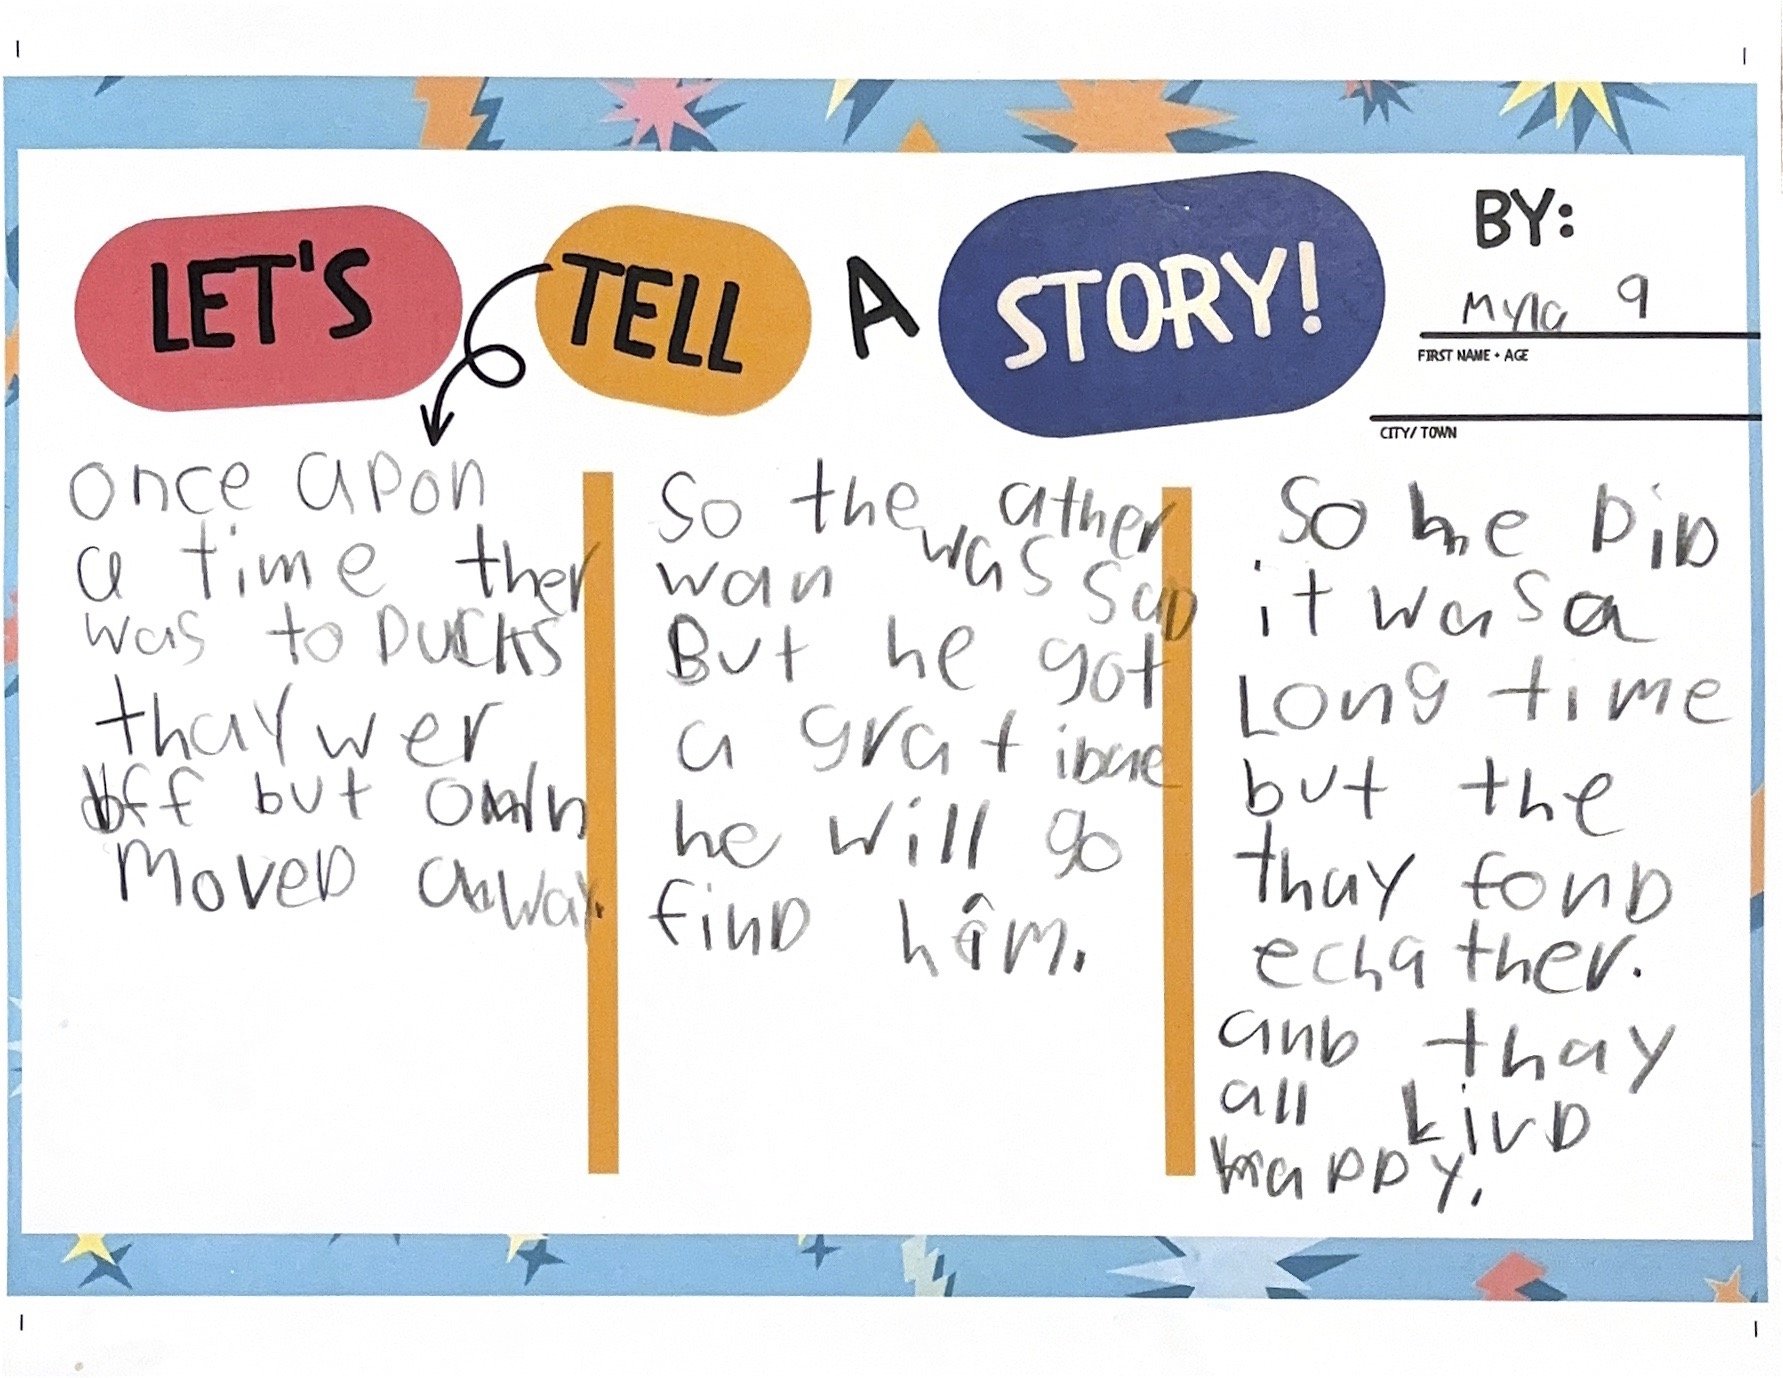 LET'S TELL A STORY!
BY:
Myla 9
FIRST NAME + AGE
CITY/ TOWN
once apon
a time ther
was to DUCKS
thay wer
bff but
moveD away.
So the ather
wan was saD
But he got
a grat
he will go
finD him.
So he DiD
it was a
Long time
but the
thay fonD
echa ther.
anb thay
all LivD
happy.